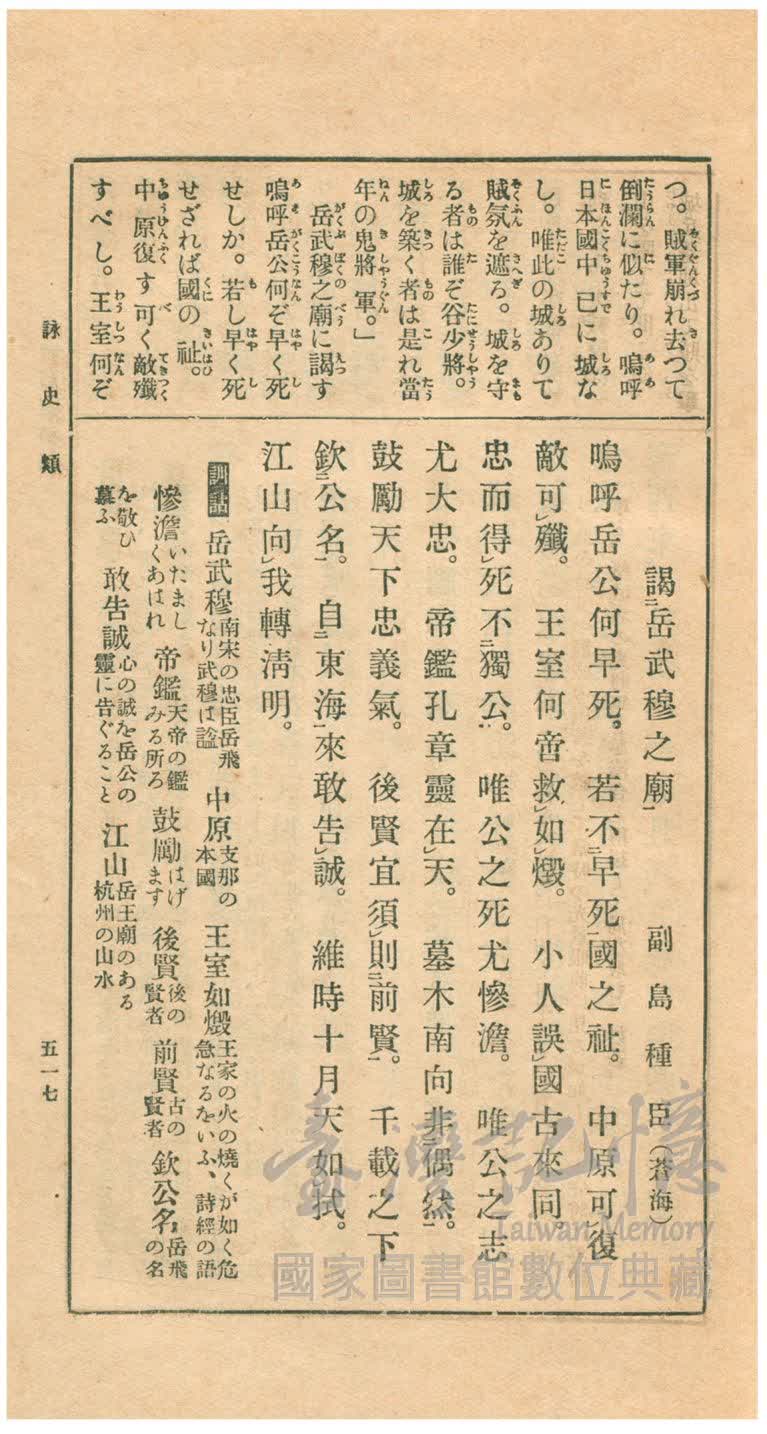 つ。賊軍崩れ去つて
倒瀾に似たり。嗚呼
日本國中已に城な
し。唯此の城ありて
賊氛を遮る。城を守
る者は誰ぞ谷少將。
城を築く者は是れ當
年の鬼將軍。」
岳武穆之廟に謁す
嗚呼岳公何ぞ早く死
せしか。若し早く死
せざれば國の祉。
中原復す可く敵殲
すべし。王室何ぞ
謁二岳武穆之廟一 副島種臣(蒼海)
嗚呼岳公何早死。若不二早死一國之祉。中原可レ復
敵可レ殲。王室何啻救レ如レ燬。小人誤レ國古來同。
忠而得レ死不二獨公一。唯公之死尤慘澹。唯公之志
尤大忠。帝鑑孔章靈在レ天。墓木南向非二偶然一。
鼓勵天下忠義氣。後賢宜須レ則二前賢一。千載之下
欽二公名一。自二東海一來敢告レ誠。維時十月天如レ拭。
江山向レ我轉淸明。
訓詁 岳武穆 南宋の忠臣岳飛なり武穆は諡 中原 支那の本國 王室如燬 王家の火の燒くが如く危急なるをいふ、詩經の語
慘澹 いたましくあはれ 帝鑑 天帝の鑑みる所ろ 鼓勵 はげます 後賢 後の賢者 前賢 古の賢者 欽公名 岳飛の名
を敬ひ慕ふ 敢告誠 心の誠を岳公の靈に告ぐること 江山 岳王廟のある杭州の山水
詠史類
五一七
臺灣記憶
Taiwan Memory
國家圖書館數位典藏